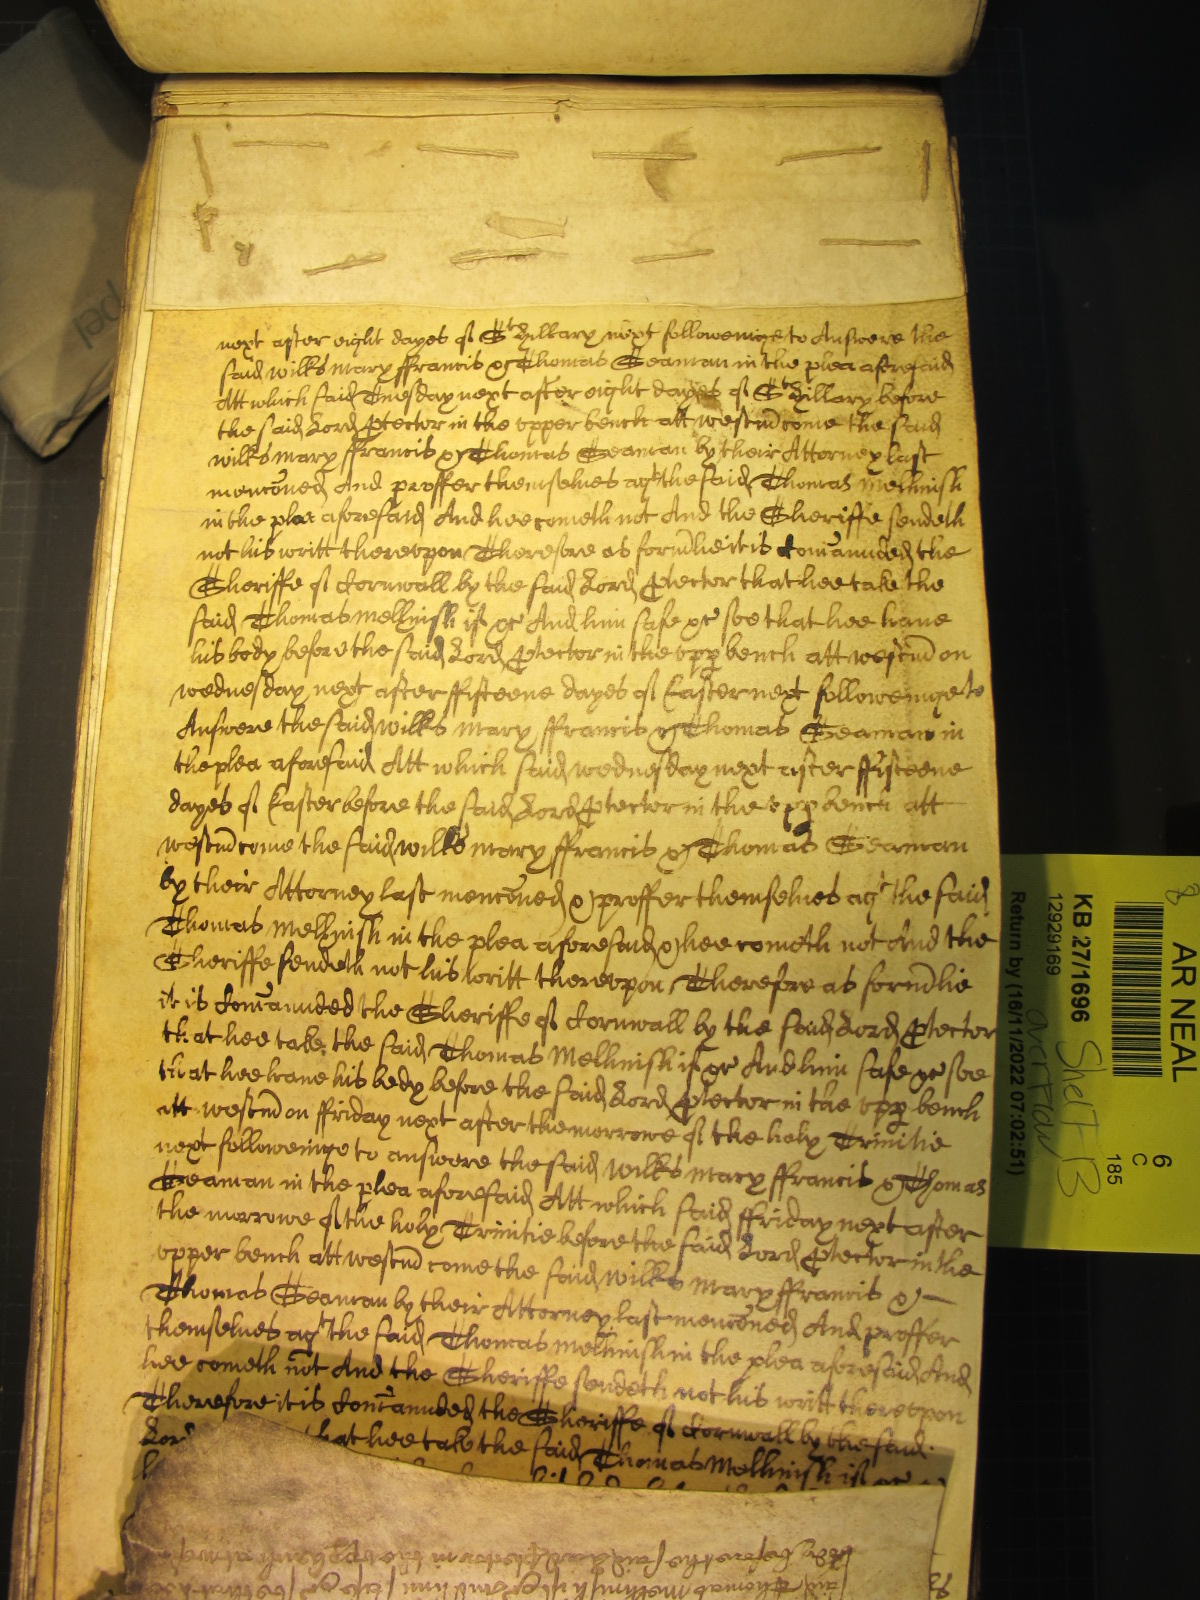 next after eight dayes of St Hillary next followeinge to Answere the
said wilks mary ffrancis & Thomas Seaman in the plea aforesaid
Att which said Tuesday next after eight dayes of St Hillary before
the said Lord Ptector in the vpper bench att westm̄ come the said
wilks mary ffrancis & Thomas Seaman by their Attorney last
menc̄oned And proffer themselves agt the said Thomas Mellhuish
in the plea aforesaid And hee cometh not And the Sheriffe sendeth
not his writt therevpon Therefore as form̄lie it is Com̄anded the
Sheriffe of Cornwall by the said Lord Ptector that hee take the
said Thomas Mellhuish if &c And him safe &c soe that hee haue
his body before the said Lord Ptector in the vpp bench att westm̄ on
wednesday next after ffifteene dayes of Easter next followeinge to
Answere the said wilks mary ffrancis & Thomas Seaman in
the plea aforesaid Att which said wednesday next after ffifteene
dayes of Easter before the said Lord Ptector in the vpp bench att
westm̄ come the said wilks mary ffrancis & Thomas Seaman
by their Attorney last menc̄oned & proffer themselves agt the said
Thomas Mellhuish in the plea aforesaid & hee cometh not And the
Sheriffe sendeth not his writt therevpon Therefore as form̄lie
it is Com̄anded the Sheriffe of Cornwall by the said Lord Ptector
that hee take the said Thomas Mellhuish if &c And him safe &c soe
that hee haue his body before the said Lord Ptector in the vpp bench
att westm̄ on ffriday next after the morrowe of the holy Trinitie
next followeinge to answere the said wilks mary ffrancis & Thomas
Seaman in the plea aforesaid Att which said ffriday next after
the morrowe of the holy Trinitie before the said Lord Ptector in the
vpper bench att westm̄ come the said wilks mary ffrancis &
Thomas Seaman by their Attorney last menc̄oned And proffer
themselves agt the said Thomas Mellhuish in the plea aforesaid And
hee cometh not And the Sheriffe sendeth not his writt therevpon
Therefore it is Com̄anded the Sheriffe of Cornwall by the said
Lord that hee take the said Thomas Mellhuish if &c
AR NEAL
6
C
185
KB 27/1696
Shelf 13
12929169
overflow
Return by (16/11/2022 07:02:51)